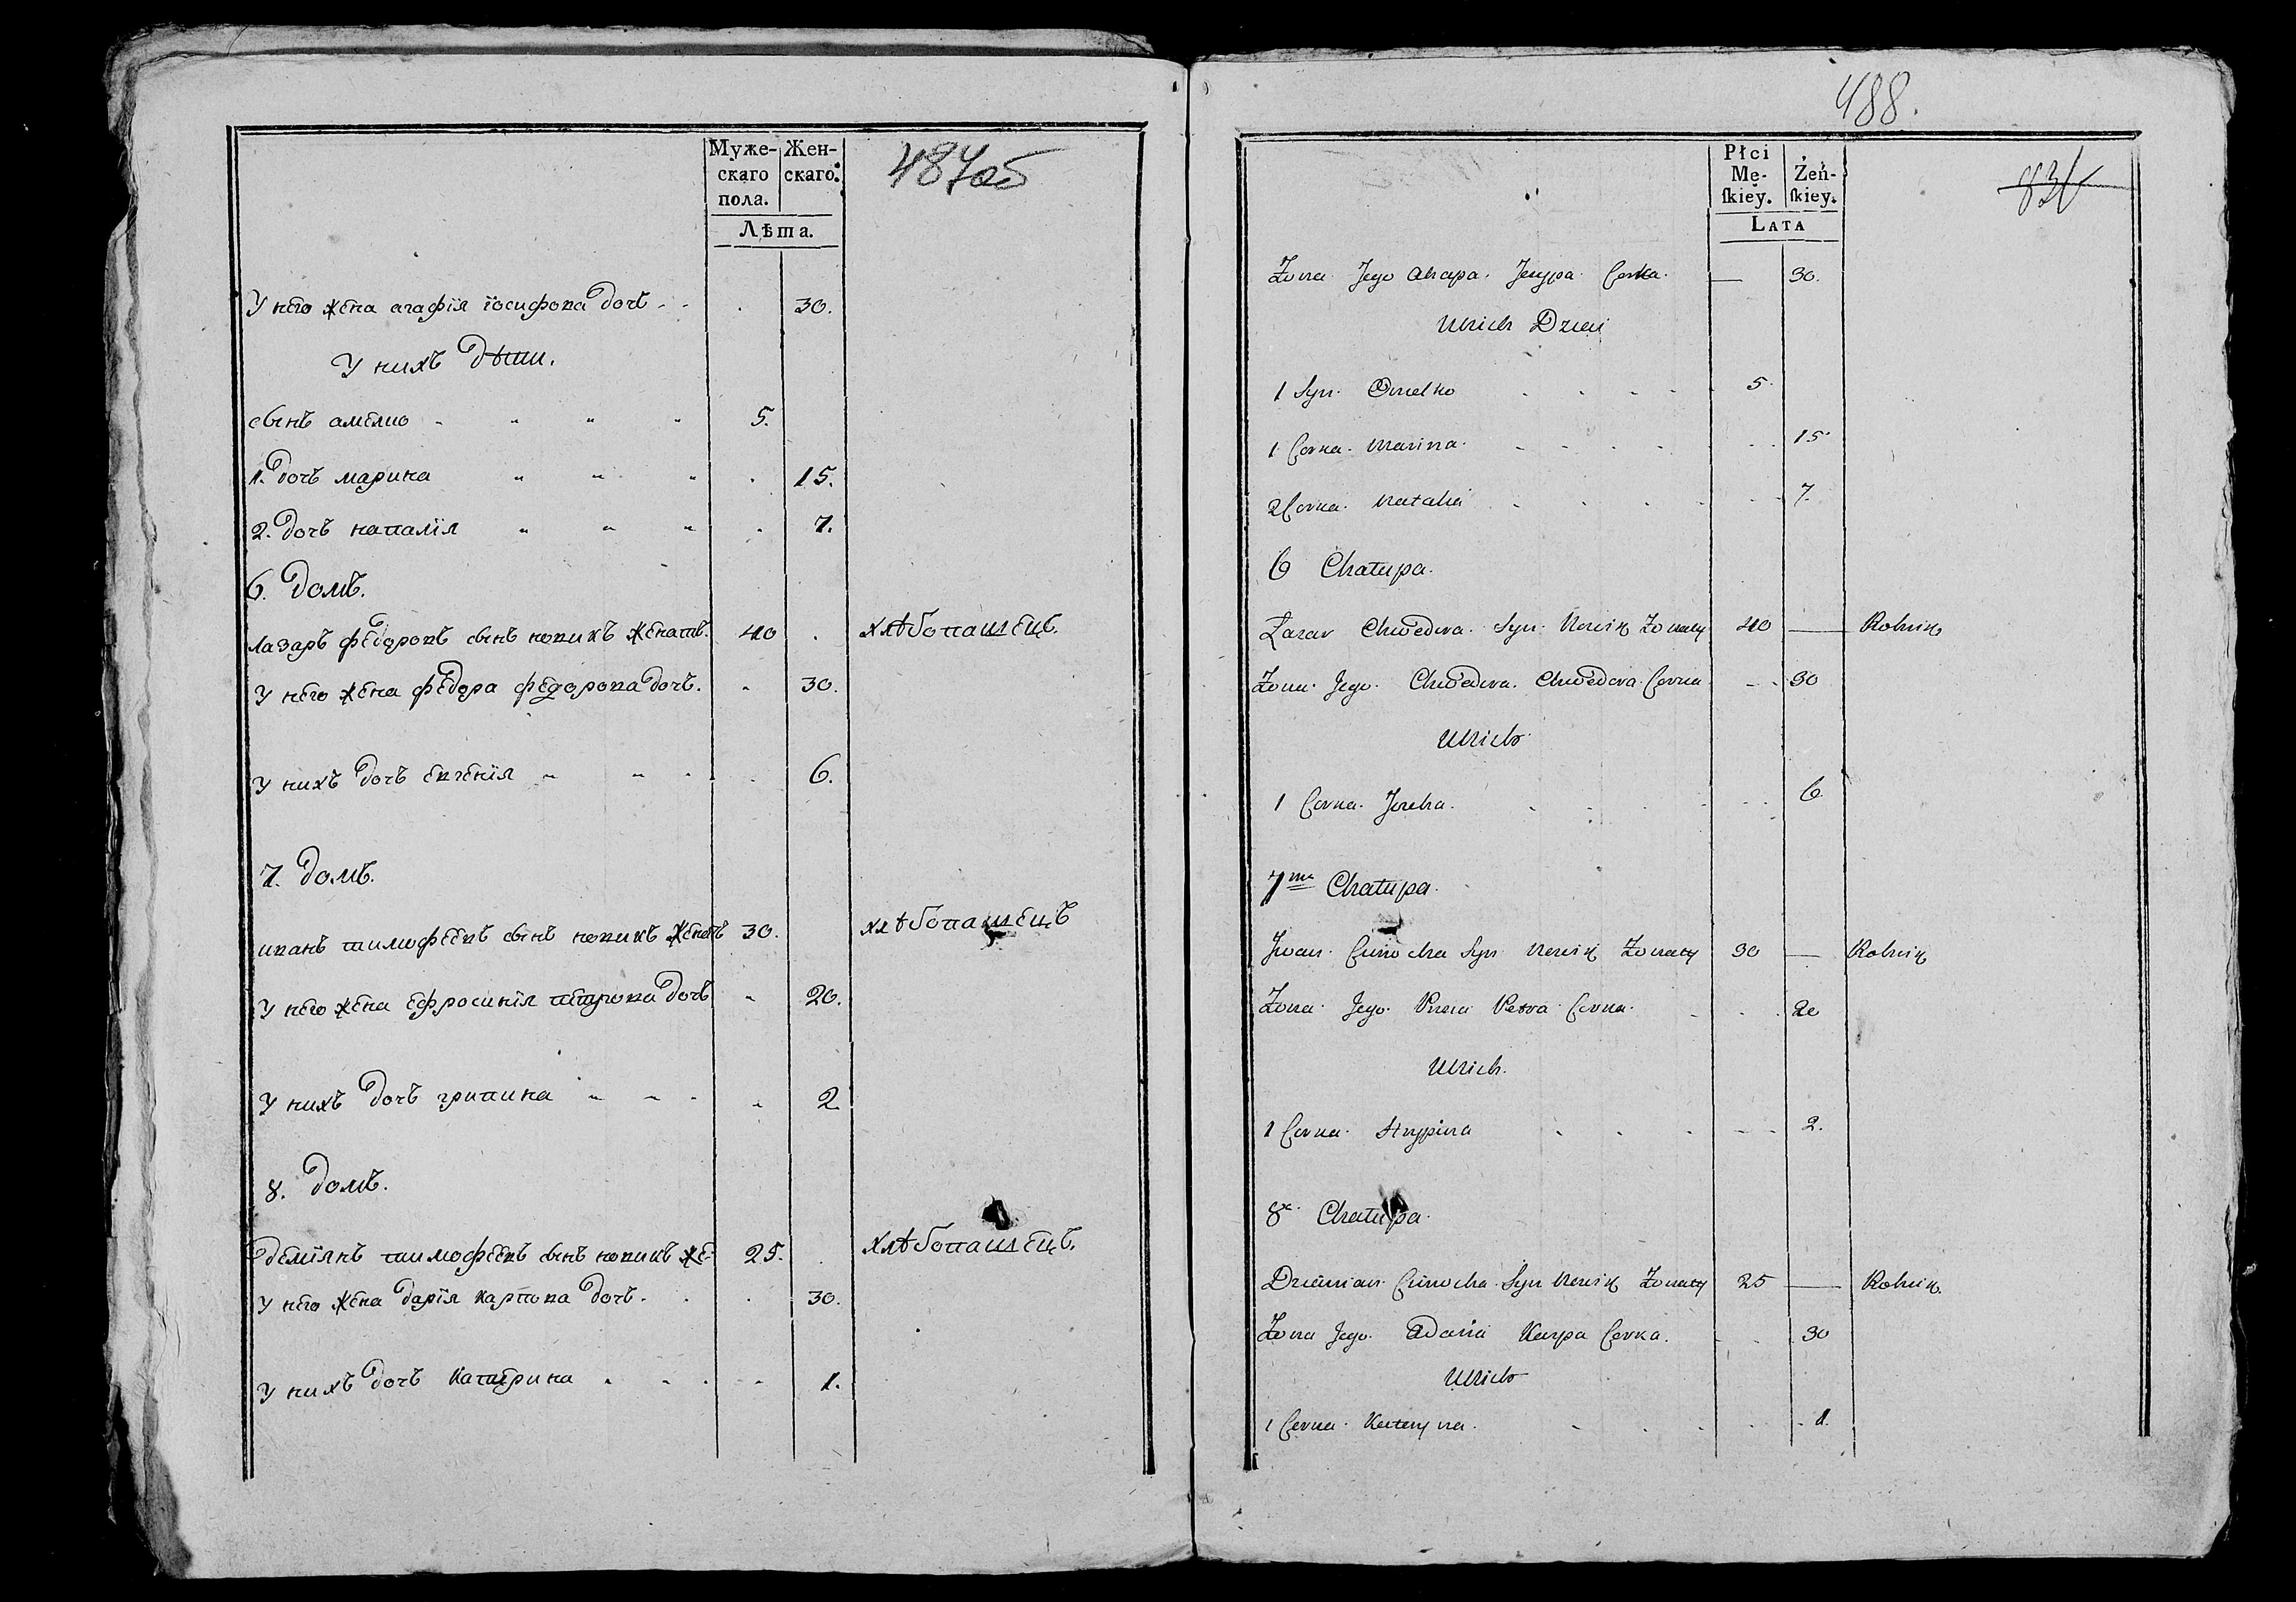 Муже-
скаго
пола.
Жен-
скаго.
Лѣта.
487об
У него жена агафїя їосифова дочь 30.
У нихъ дѣти.
сынъ амелко 5.
1. дочь марина 15.
2. дочь наталїя 7.
6. домъ.
лазарь федоровъ сынъ новикъ женатъ. 40 хлѣбопашецъ.
У него жена федора федорова дочь. 30.
У нихъ дочь евгенїя 6.
7. домъ.
иванъ тимофеевъ сынъ новикъ женатъ 30. хлѣбопашецъ
У него жена ефросинїя петрова дочь 20.
У нихъ дочь грипина 2.
8. домъ.
демїянъ тимофеевъ сынъ новикъ же- 25. хлѣбопашецъ.
У него жена дарїя карпова дочь. 30.
У нихъ дочь катерина 1.
488.
Płci
Mę-
ſkiey.
Żeń-
ſkiey.
LATA
Zona Jego Corka. — 30.
Uhich Dzieci
1 Syn Omelko 5.
1 Corka Marina 15.
2 Corka Natalia 7.
6 Chatupa.
Łazar Chwedora Syn Nowik Zonaty 40 — Rolnik
Zona Jego Chwedora Chwedora Corka 30
Uhich
1 Corka 6
7ma Chatupa.
Jwan Cimocha Syn Nowik Zonaty 30 — Rolnik
Zona Jego Petra Corka. 20
Uhich.
1 Corka Hrypina 2.
8a Chatupa.
Dziemian Cimocha Syn Nowik Zonaty 25 — Rolnik.
Zona Jego Adaria Karpa Corka. 30
Uhich
1 Corka Kateryna. 1.